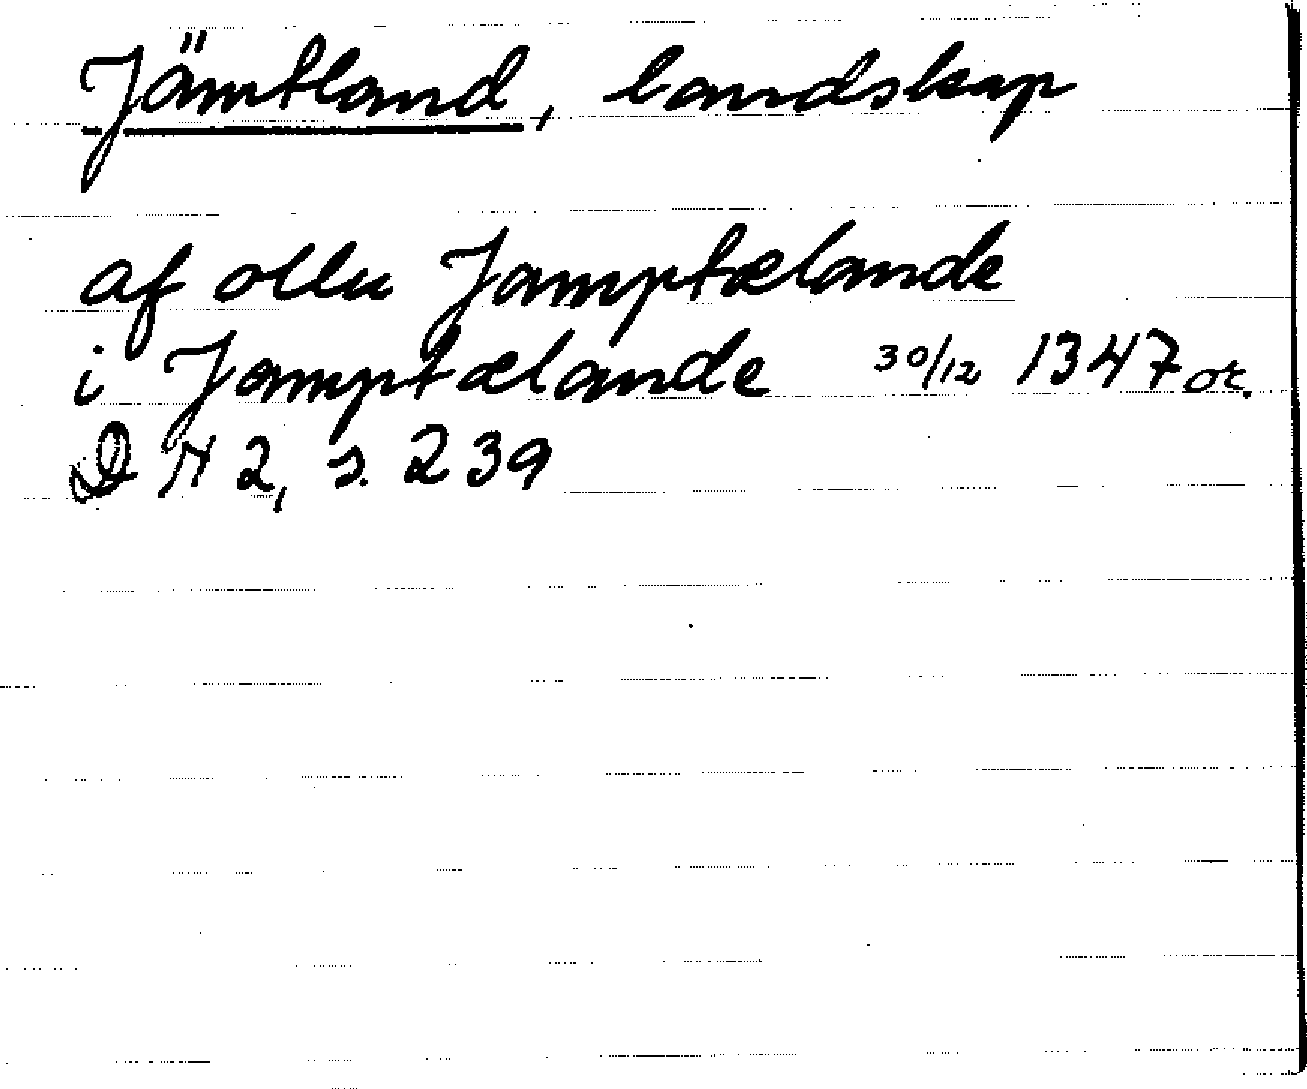 Jämtland, landskap
af ollu Jamptælande
i Jamptælande 30/12 1347 or.
DN 2, s. 239